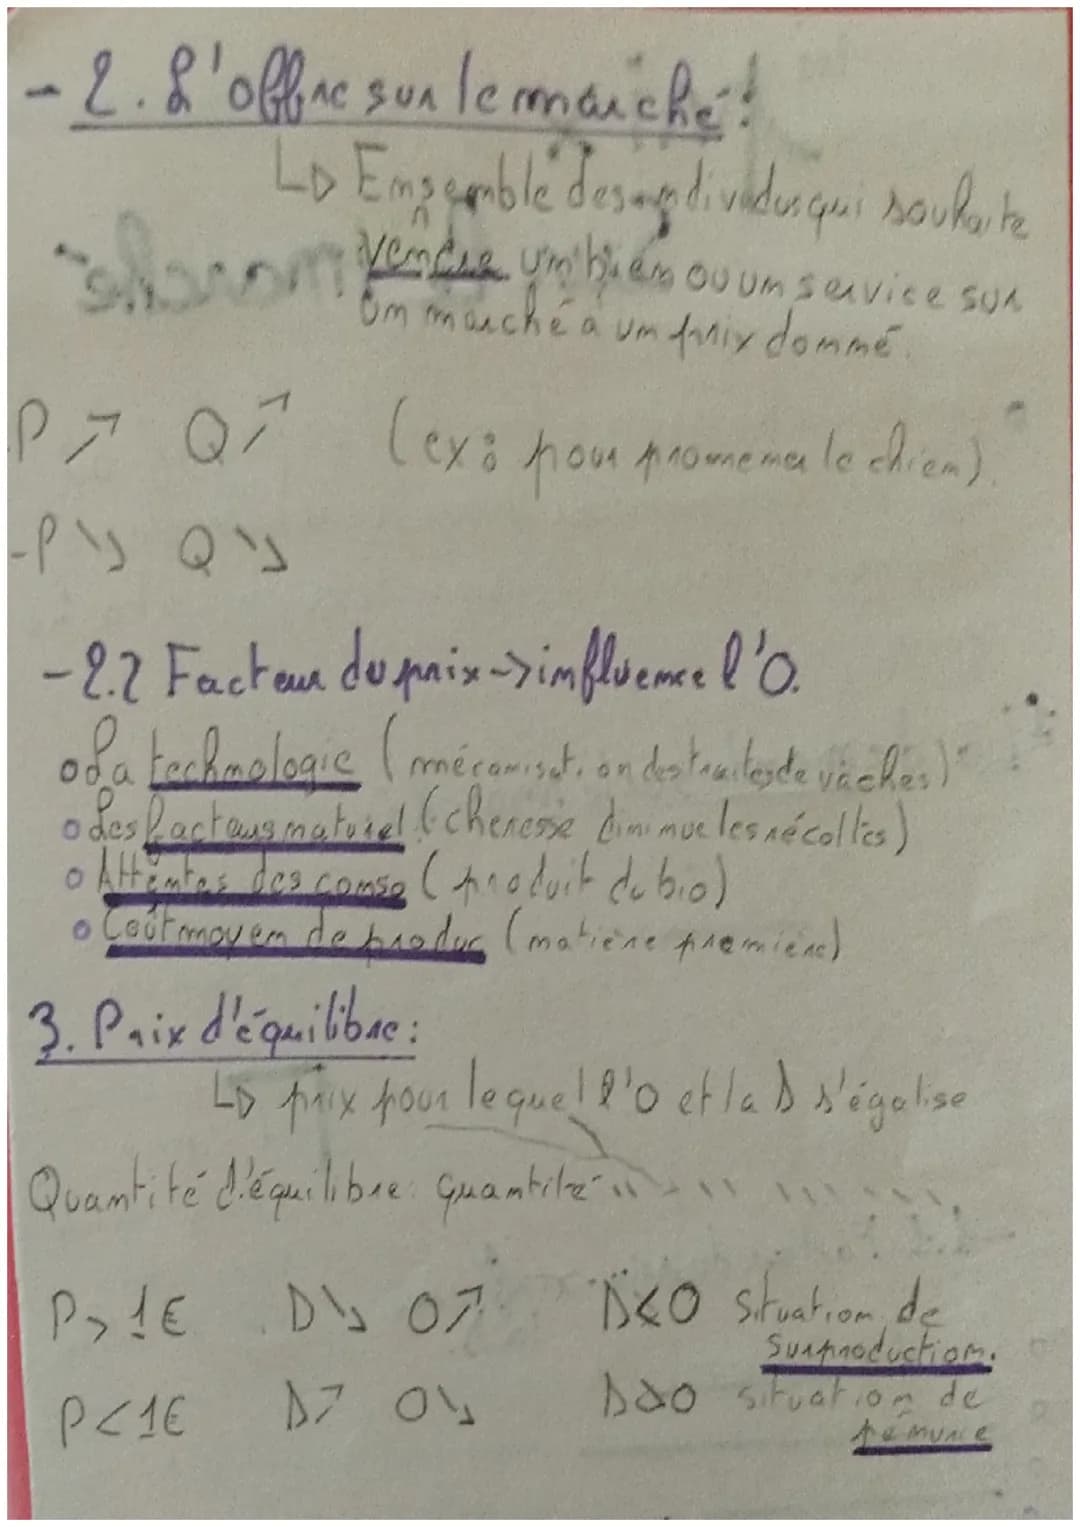 - 2. L'offre sur le marché :
↳ Ensemble des individus qui souhaite
vendre un bien ou un service sur
un marché à un prix donné.
P ↗ Q ↗ (ex : pour promener le chien).
- P ↘ Q ↘
- 2.2 Facteur du prix -> influence l'O.
o La technologie (mécanisation des traites de vaches)
o Les facteurs naturel (cheresse diminue les récoltes)
o Attentes des conso (produit du bio)
o Coût moyen de produc (matière première)
3. Prix d'équilibre :
↳ prix pour lequel l'O et la D s'égalise
Quantité d'équilibre : quantité " " " " " "
P > 1€ D ↘ O ↗ D < O Situation de
surproduction.
P < 1€ D ↗ O ↘ D > O situation de
pénurie